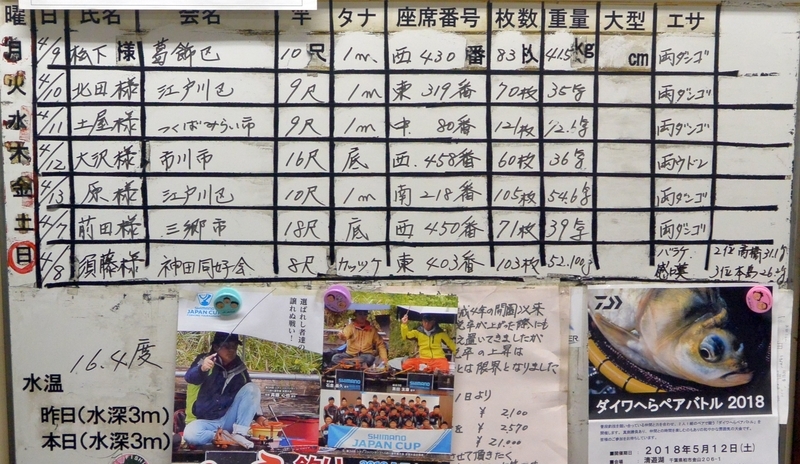 曜 日 氏名 会名 竿 タナ 座席番号 枚数 重量 大型 エサ
月 4/9 松下様 葛飾区 10尺 1m 西 430番 83枚 41.5kg cm 両ダンゴ
火 4/10 北田様 江戸川区 9尺 1m 東 319番 70枚 35㌔ 両ダンゴ
水 4/11 土屋様 つくばみらい市 9尺 1m 中 80番 121枚 両ダンゴ
木 4/12 大沢様 市川市 16尺 底 西 458番 60枚 36㌔ 両ウドン
金 4/13 原様 江戸川区 10尺 1m 南 218番 105枚 54.6㌔ 両ダンゴ
土 4/7 前田様 三郷市 18尺 底 西 450番 71枚 39㌔ 両ダンゴ
日 4/8 須藤様 神田同好会 8尺 カッツケ 東 403番 103枚 52.100 バラケ
2位 高橋 31.1㌔
3位 本島 26.2㌔
16.4度
水温
昨日(水深3m)
本日(水深3m)
JAPAN CUP
選ばれし者達の
譲れぬ戦い!
SHIMANO
SHIMANO
SHIMANO
JAPAN CUP
成4年の開園以来
が上がった際にも
え置いてきましたが
の上昇は
とは限界となりました
1日より
¥ 2,100
¥ 2,570
¥ 21,000
させて頂きたく
DAIWA
ダイワへらペアバトル 2018
2018年5月12日(土)
清遊湖